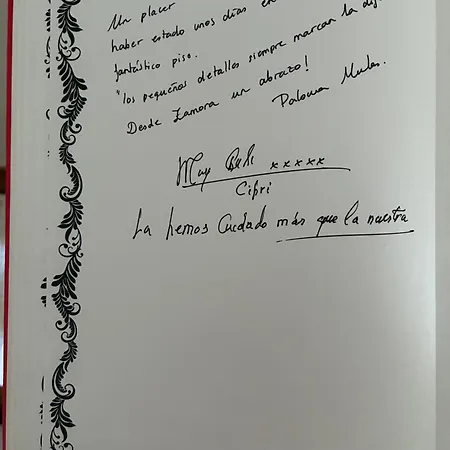 Un placer
haber estado unos días en
fantástico piso.
"los pequeñas detalles siempre marcan la
Desde Zamora un abrazo!
Paloma Mulas.
Muy xxxxx
Cipri
La hemos Cuidado más que la nuestra